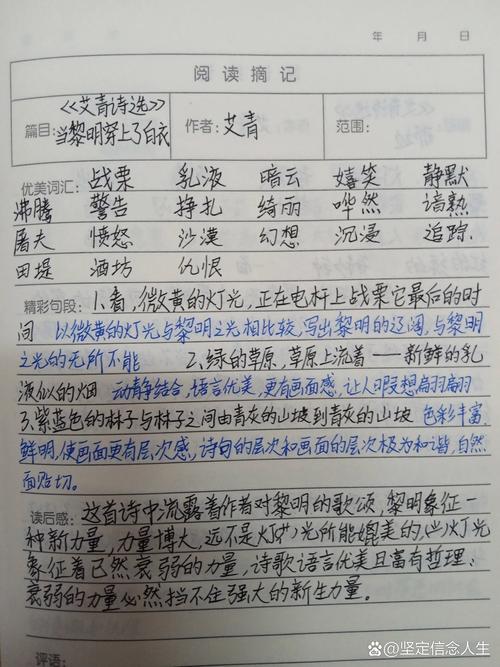 年 月 日
阅读摘记
《艾青诗选》
篇目: 当黎明穿上了白衣 作者: 艾青 范围:
优美词汇: 战栗 乳液 暗云 嬉笑 静默
沸腾 警告 挣扎 绮丽 哗然 谙熟
屠夫 愤怒 沙漠 幻想 沉浸 追踪.
田堤 酒坊 仇恨
精彩句段: 1、看,微黄的灯光,正在电杆上战栗它最后的时
间 以微黄的灯光与黎明之光相比较,写出黎明的辽阔,与黎明
之光的无所不能 2、绿的草原,草原上流着——新鲜的乳
液似的烟 动静结合,语言优美,更有画面感,让人瑕想翩翩
3、紫蓝色的林子与林子之间由青灰的山坡到青灰的山坡 色彩丰富,
鲜明,使画面更有层次感,诗句的层次和画面的层次极为和谐,自然
而贴切.
读后感: 这首诗中流露着作者对黎明的歌颂,黎明象征一
种新力量,力量博大,远不是灯火光所能媲美的,灯光
象征着已然衰弱的力量,诗歌语言优美且富有哲理:
衰弱的力量必然挡不住强大的新生力量。
评语:
@坚定信念人生